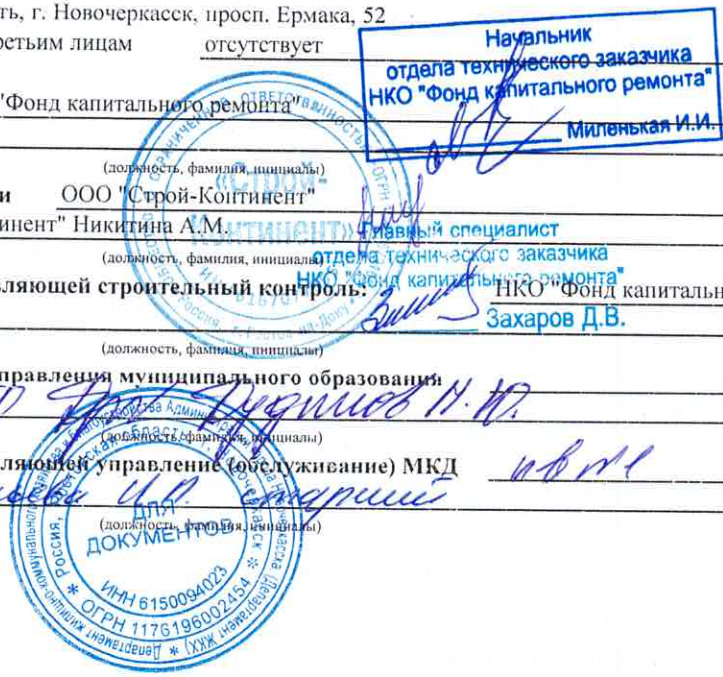 ть, г. Новочеркасск, просп. Ермака, 52
ретьим лицам отсутствует
Начальник
отдела технического заказчика
НКО "Фонд капитального ремонта"
Миленькая И.И.
"Фонд капитального ремонта"
(должность, фамилия, инициалы)
и ООО "Строй-Континент"
инент" Никитина А.М.
(должность, фамилия, инициалы)
Главный специалист
отдела технического заказчика
НКО "Фонд капитального ремонта"
Захаров Д.В.
вляющей строительный контроль: НКО "Фонд капитальн
(должность, фамилия, инициалы)
правления муниципального образования
Н.Ю.
(должность, фамилия, инициалы)
вляющей управление (обслуживание) МКД
старший
(должность, фамилия, инициалы)
ОГРАНИЧЕННОЙ ОТВЕТСТВЕННОСТЬЮ
«Строй-
Континент»
ДЛЯ
ДОКУМЕНТОВ
ИНН 6150094023
ОГРН 1176196002454
Россия, Ростовская область, г. Новочеркасск
Департамент жилищно-коммунального хозяйства и благоустройства Администрации города Новочеркасска (Департамент ЖКХ)